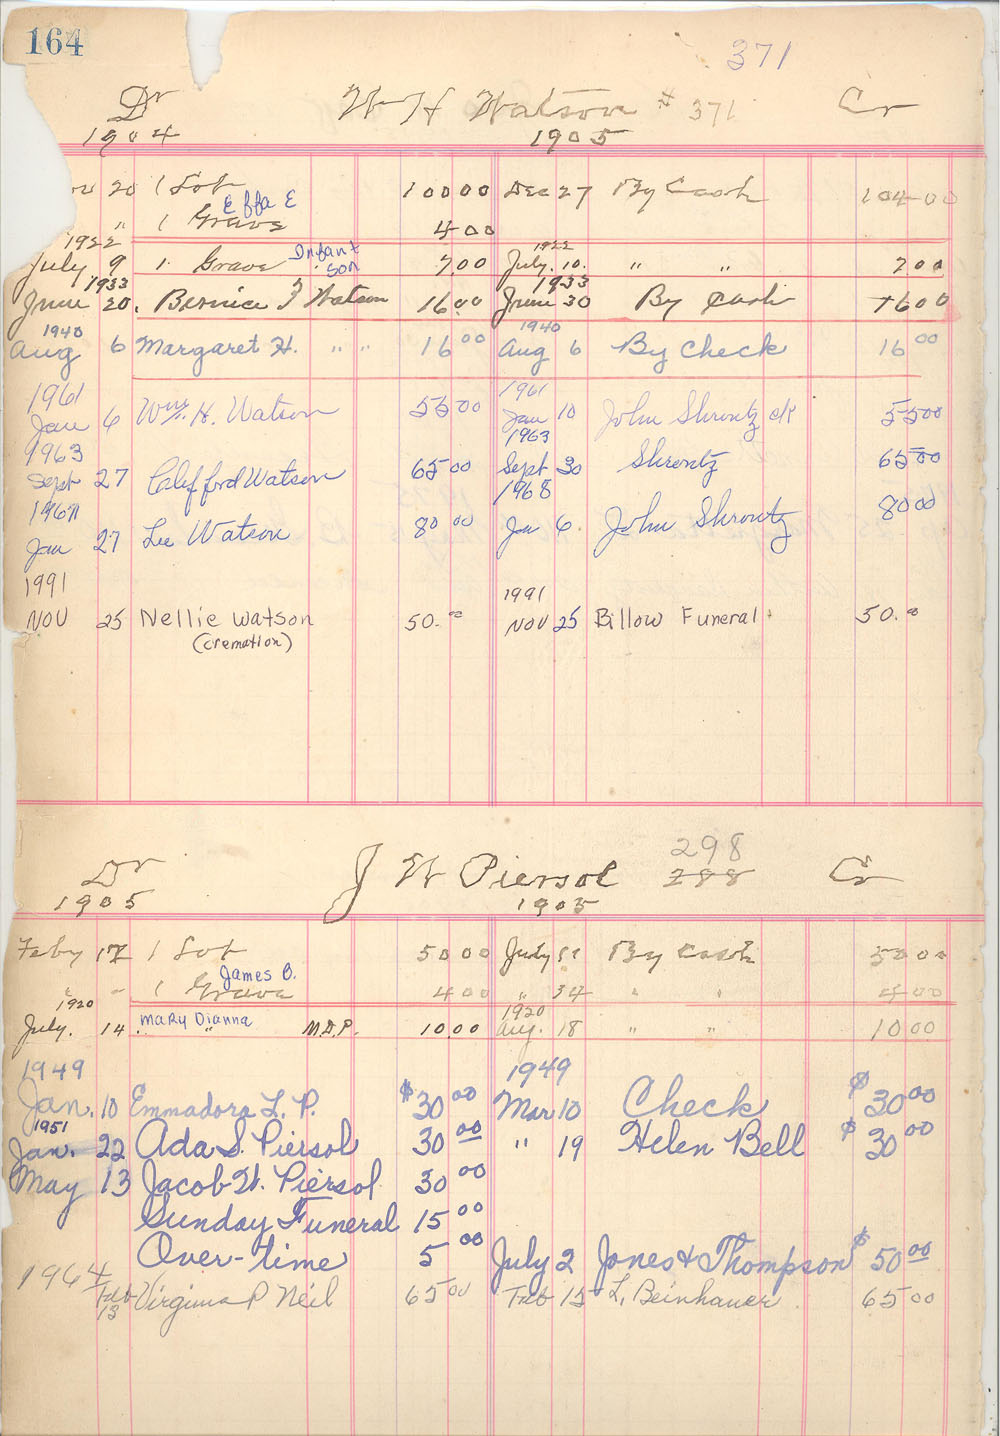 164
371
Dr W H Watson # 371 Cr
1904 1905
20 1 Lot 100 00 Dec 27 By Cash 104 00
Effa E
" 1 Grave 4 00
1922 1922
July 9 1 Grave Infant son 7.00 July. 10. " " 7 00
1933 1933
June 20. Bernice F Watson 16.00 June 30 By Cash 16 00
1940 1940
Aug 6 Margaret H. " " 16 00 Aug 6 By Check 16 00
1961 1961
Jan 6 Wm. H. Watson 55 00 Jan 10 John Shrontz ck 55 00
1963 1963
Sept 27 Clifford Watson 65 00 Sept 30 Shrontz 65 00
1968
Jan 27 Lee Watson 80 00 Jan 6. John Shrontz 80 00
1991 1991
Nov 25 Nellie Watson 50.00 Nov 25 Billow Funeral 50.00
(cremation)
298
Dr J W Piersol 288 Cr
1905 1905
Feby 17 1 Lot 50 00 July By Cash 50 00
James B.
" 1 Grave 4 00 " " " 4 00
1920 1920
July. 14. Mary Dianna " M.D.P. 10.00 Aug. 18 " " 10 00
1949 1949
Jan. 10 Emmadora L. P. $30 00 Mar 10 Check $30 00
1951
Jan. 22 Ada S. Piersol 30 00 " 19 Helen Bell $30 00
May 13 Jacob H. Piersol 30 00
Sunday Funeral 15 00
Over-time 5 00 July 2 Jones & Thompson $50 00
1964
Feb 13 Virginia P Neil 65 00 Feb 15 L. Beinhauer 65 00